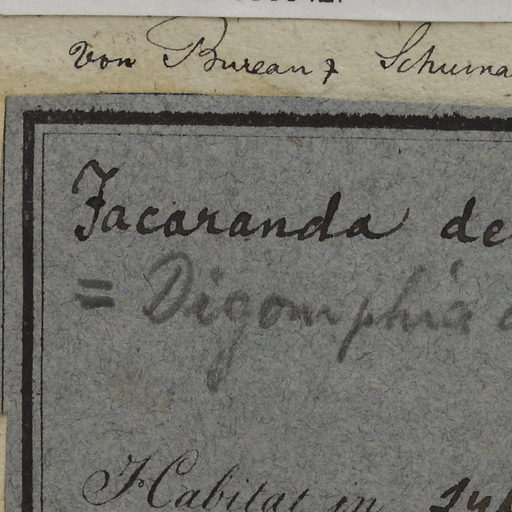 von Bureau & Schuma
Jacaranda de
= Digomphia
Habitat in